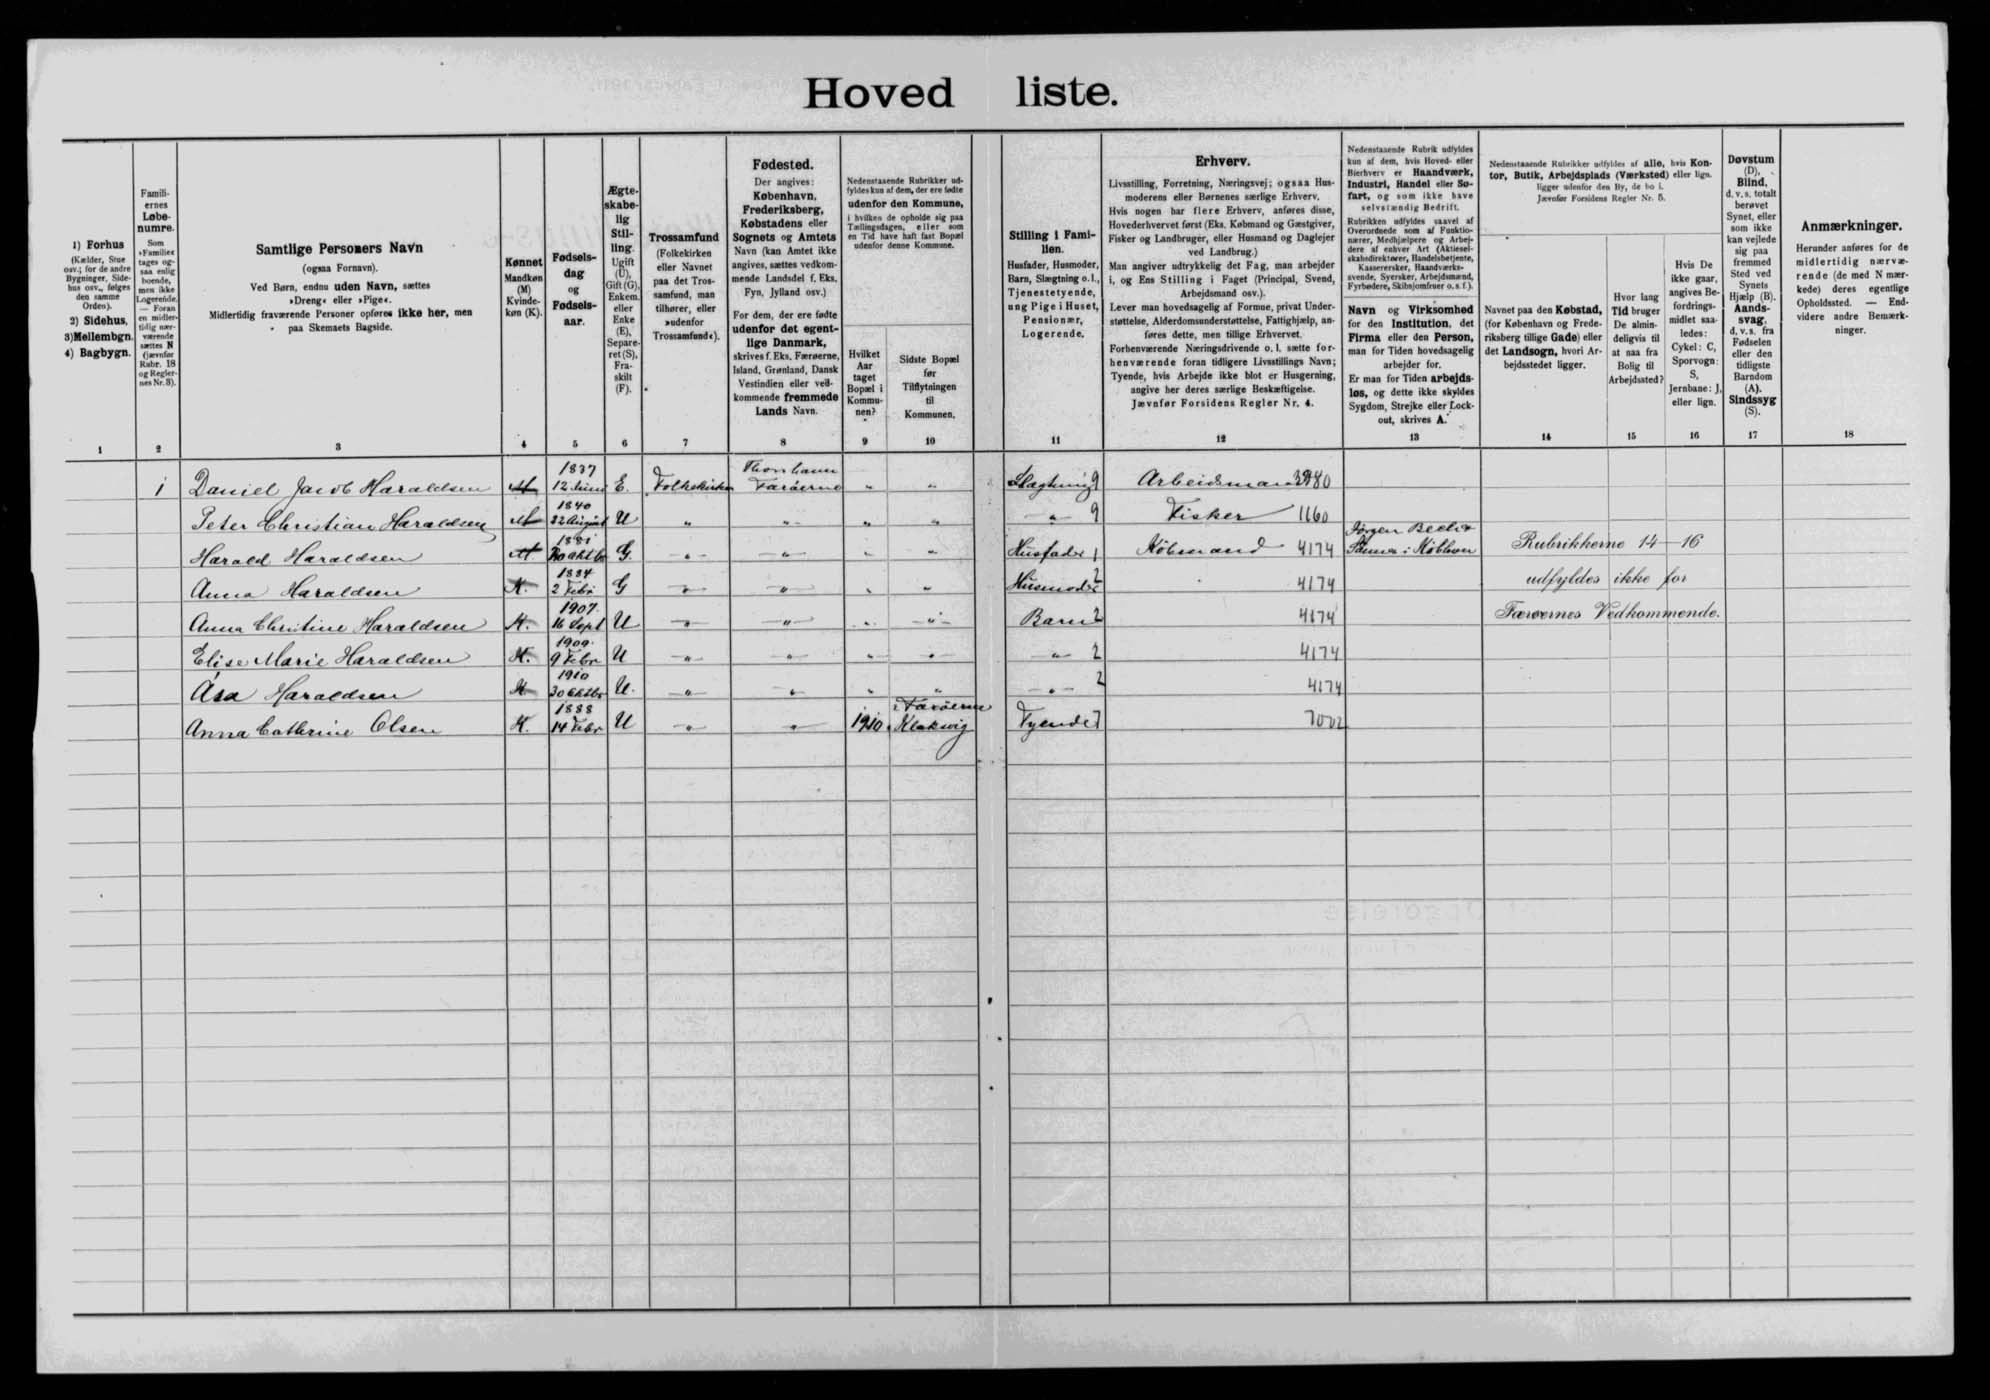 Hoved liste.
1) Forhus
(Kælder, Stue
osv.; for de andre
Bygninger, Side-
hus osv., følges
den samme
Orden).
2) Sidehus,
3) Mellembgn.
4) Bagbygn.
1
Famili-
ernes
Løbe-
numre.
Som
»Familie«
tages og-
saa enlig
boende,
men ikke
Logerende.
— Foran
en midler-
tidig nær-
værende
sættes N
(jævnfør
Rubr. 18
og Regler-
nes Nr. 3).
2
Samtlige Personers Navn
(ogsaa Fornavn).
Ved Børn, endnu uden Navn, sættes
»Dreng« eller »Pige«.
Midlertidig fraværende Personer opføres ikke her, men
paa Skemaets Bagside.
3
Kønnet
Mandkøn
(M)
Kvinde-
køn (K).
4
Fødsels-
dag
og
Fødsels-
aar.
5
Ægte-
skabe-
lig
Stil-
ling.
Ugift
(U),
Gift (G),
Enkem.
eller
Enke
(E),
Separe-
ret (S),
Fra-
skilt
(F).
6
Trossamfund
(Folkekirken
eller Navnet
paa det Tros-
samfund, man
tilhører, eller
»udenfor
Trossamfund«).
7
Fødested.
Der angives:
København,
Frederiksberg,
Købstadens eller
Sognets og Amtets
Navn (kan Amtet ikke
angives, sættes vedkom-
mende Landsdel f. Eks.
Fyn, Jylland osv.)
For dem, der ere fødte
udenfor det egent-
lige Danmark,
skrives f. Eks. Færøerne,
Island, Grønland, Dansk
Vestindien eller ved-
kommende fremmede
Lands Navn.
8
Nedenstaaende Rubrikker ud-
fyldes kun af dem, der ere fødte
udenfor den Kommune,
i hvilken de opholde sig paa
Tællingsdagen, eller som
en Tid have haft fast Bopæl
udenfor denne Kommune.
Hvilket
Aar
taget
Bopæl i
Kommu-
nen?
9
Sidste Bopæl
før
Tilflytningen
til
Kommunen.
10
Stilling i Fami-
lien.
Husfader, Husmoder,
Barn, Slægtning o.l.,
Tjenestetyende,
ung Pige i Huset,
Pensionær,
Logerende.
11
Erhverv.
Livsstilling, Forretning, Næringsvej; ogsaa Hus-
moderens eller Børnenes særlige Erhverv.
Hvis nogen har flere Erhverv, anføres disse,
Hovederhvervet først (Eks. Købmand og Gæstgiver,
Fisker og Landbruger, eller Husmand og Daglejer
ved Landbrug.)
Man angiver udtrykkelig det Fag, man arbejder
i, og Ens Stilling i Faget (Principal, Svend,
Arbejdsmand osv.).
Lever man hovedsagelig af Formue, privat Under-
støttelse, Alderdomsunderstøttelse, Fattighjælp, an-
føres dette, men tillige Erhvervet.
Forhenværende Næringsdrivende o. l. sætte for-
henværende foran tidligere Livsstillings Navn;
Tyende, hvis Arbejde ikke blot er Husgerning,
angive her deres særlige Beskæftigelse.
Jævnfør Forsidens Regler Nr. 4.
12
Nedenstaaende Rubrik udfyldes
kun af dem, hvis Hoved- eller
Bierhverv er Haandværk,
Industri, Handel eller Sø-
fart, og som ikke have
selvstændig Bedrift.
Rubrikken udfyldes saavel af
Overordnede som af Funktio-
nærer, Medhjælpere og Arbej-
dere af enhver Art (Aktiesel-
skabsdirektører, Handelsbetjente,
Kasserersker, Haandværks-
svende, Syersker, Arbejdsmænd,
Fyrbødere, Skibsjomfruer o. s. f.).
Navn og Virksomhed
for den Institution, det
Firma eller den Person,
man for Tiden hovedsagelig
arbejder for.
Er man for Tiden arbejds-
løs, og dette ikke skyldes
Sygdom, Strejke eller Lock-
out, skrives A.
13
Nedenstaaende Rubrikker udfyldes af alle, hvis Kon-
tor, Butik, Arbejdsplads (Værksted) eller lign.
ligger udenfor den By, de bo i.
Jævnfør Forsidens Regler Nr. 5.
Navnet paa den Købstad,
(for København og Frede-
riksberg tillige Gade) eller
det Landsogn, hvori Ar-
bejdsstedet ligger.
14
Hvor lang
Tid bruger
De almin-
deligvis til
at naa fra
Bolig til
Arbejdssted?
15
Hvis De
ikke gaar,
angives Be-
fordrings-
midlet saa-
ledes:
Cykel: C,
Sporvogn:
S,
Jernbane: J,
eller lign.
16
Døvstum
(D),
Blind,
d. v. s. totalt
berøvet
Synet, eller
som ikke
kan vejlede
sig paa
fremmed
Sted ved
Synets
Hjælp (B).
Aands-
svag,
d. v. s. fra
Fødselen
eller den
tidligste
Barndom
(A).
Sindssyg
(S).
17
Anmærkninger.
Herunder anføres for de
midlertidig nærvæ-
rende (de med N mær-
kede) deres egentlige
Opholdssted. — End-
videre andre Bemærk-
ninger.
18
1 Daniel Jacob Haraldsen M 1837 12 Juni E. Folkekirken Thorshavn Færöerne " " Slægtning 9 Arbeidsmand 80
Peter Christian Haraldsen M 1840 22 August U " " " " " 9 Fisker 1160
Harald Haraldsen M. 1881 Oktbr G. " " " " Husfader 1 Købmand 4174 Jørgen i Kbhvn Rubrikkerne 14-16
Anna Haraldsen K. 1884 2 Febr G " " " " Husmoder 2 4174 udfyldes ikke for
Anna Christine Haraldsen K. 1907. 16 Sept U " " " " Barn 2 4174 Færøernes Vedkommende.
Elise Marie Haraldsen K. 1909. 9 Febr U " " " " " 2 4174
Ása Haraldsen K 1910 30 Oktbr U. " " " " " 2 4174
Anna Cathrine Olsen K. 1888 14 Febr U " " 1910 Færöerne Klaksvig Tyende 7 7002